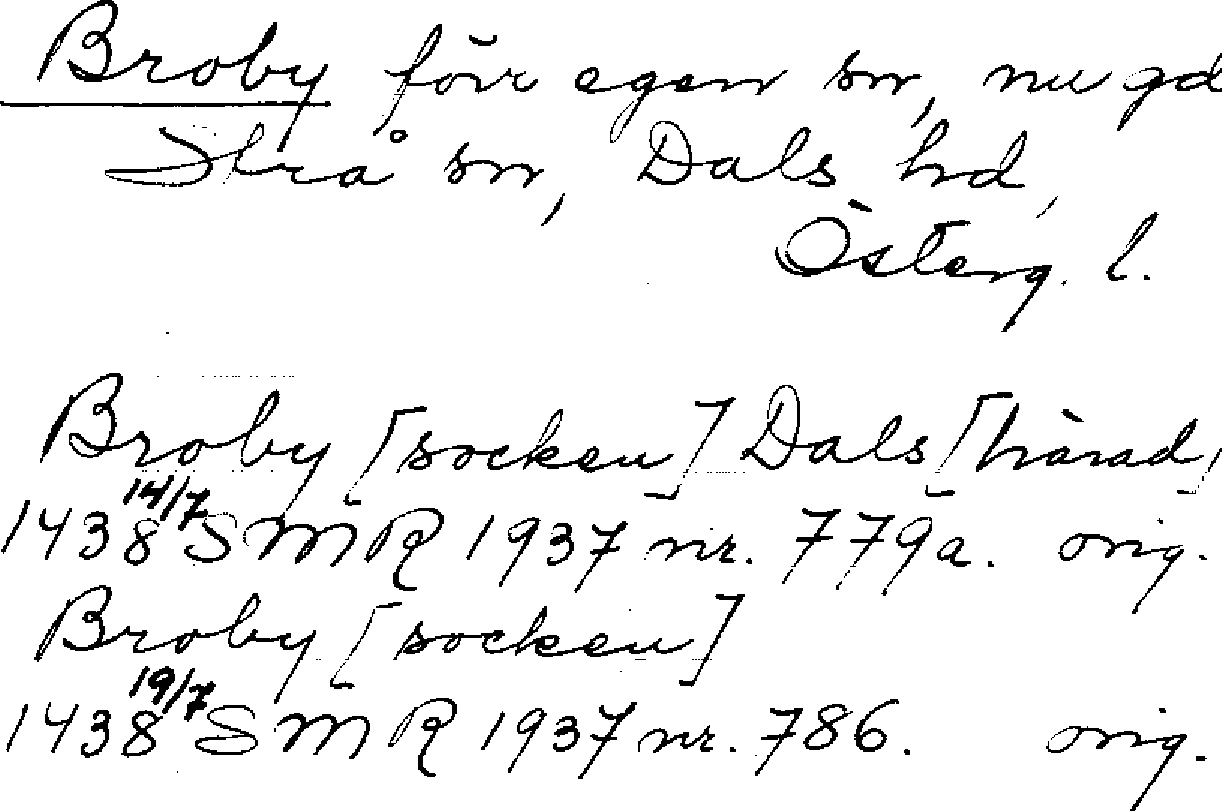 Broby förr egen sn, nu gd
Strå sn, Dals hd,
Österg. l.
Broby [socken] Dals [härad]
1438 14/7 SMR 1937 nr. 779a. orig.
Broby [socken]
1438 19/7 SMR 1937 nr. 786. orig.